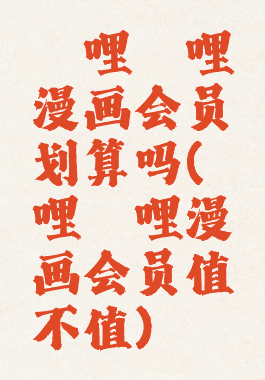 哩 哩
漫画会员
划算吗(
哩 哩漫
画会员值
不值)